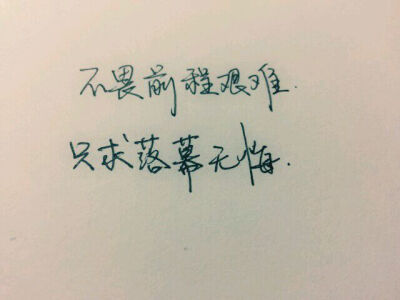 不畏前程艰难.
只求落幕无悔.